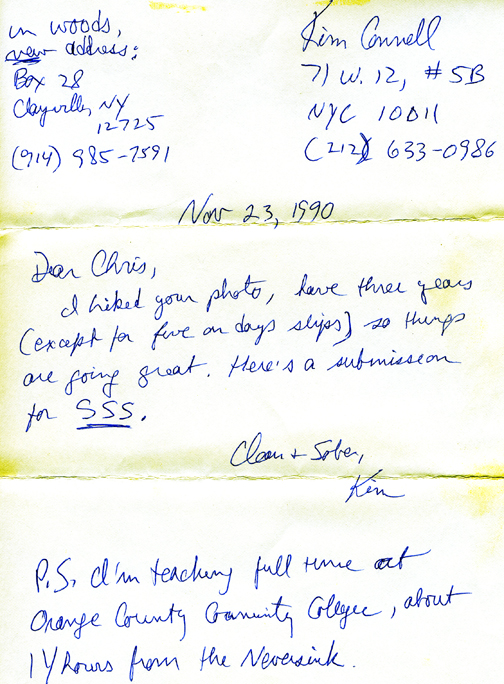 in woods,
new address:
Box 28
Clayville, NY
12725
(914) 985-7591
Kim Connell
71 W. 12, # 5B
NYC 10011
(212) 633-0986
Nov 23, 1990
Dear Chris,
I liked your photo, have three years
(except for five days slips) so things
are going great. Here's a submission
for SSS.
Clean + Sober,
Kim
P.S. I'm teaching full time at
Orange County Community College, about
hours from the Neversink.